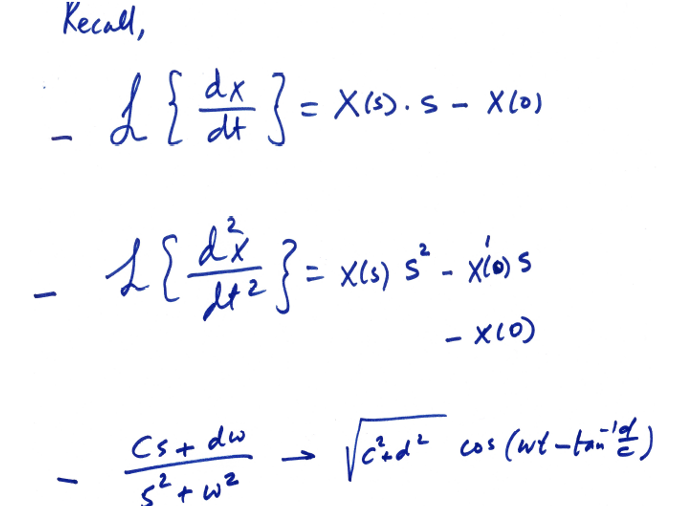 Recall,
- ℒ { dx/dt } = X(s) · s - x(0)
- ℒ { d²x/dt² } = X(s) s² - x'(0) s
- x(0)
- (cs + dω)/(s² + ω²) → √(c² + d²) cos (ωt - tan⁻¹ d/c)